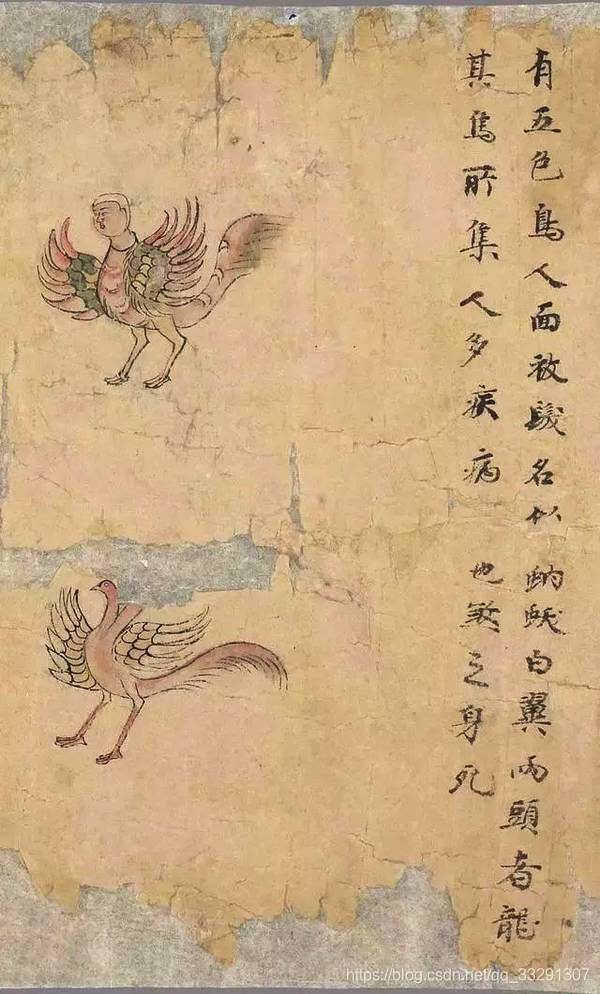 有五色鳥人面被髮名似蚋蛾白翼兩頭者龍
其鳥所集人多疾病 也煞之身死
https://blog.csdn.net/qq_33291307